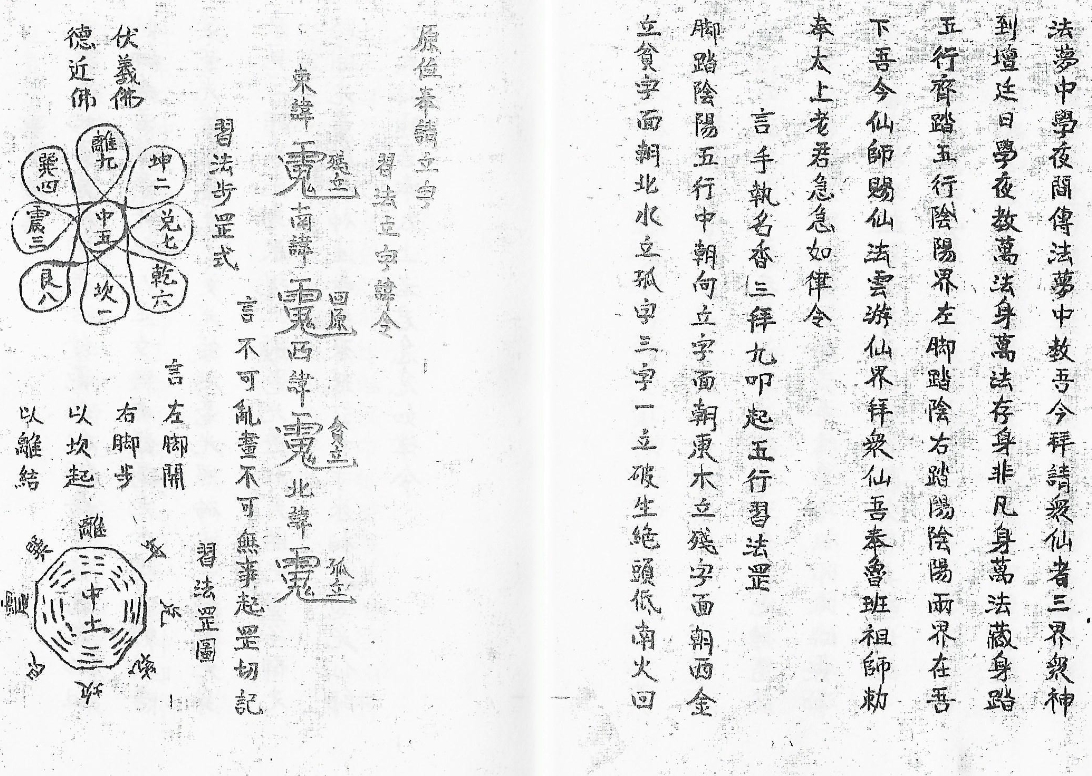 法夢中學夜間傳法夢中教吾今拜請衆仙者三界衆神
到壇廷日學夜教萬法身萬法存身非凡身萬法藏身踏
五行齊踏五行陰陽界左脚踏陰右踏陽陰陽兩界在吾
下吾今仙師賜仙法雲游仙界拜衆仙吾奉魯班祖師勅
奉太上老君急急如律令
言手執名香三拜九叩起五行習法罡
脚踏陰陽五行中朝向立字面朝東木立殘字面朝西金
立貧字面朝北水立孤字三字一立破生絶頭低南火回
原位奉請立字
習法立字諱令
東諱 殘立
南諱 回原
西諱 貪立
北諱 孤立
言不可亂畫不可無事起罡切記
習法步罡式
伏義佛
德近佛
離九
坤二
巽四
兌七
震三
中五
乾六
艮八
坎一
言左脚開
右脚步
以坎起
以離結
習法罡圖
離
巽
兌
中土
坎